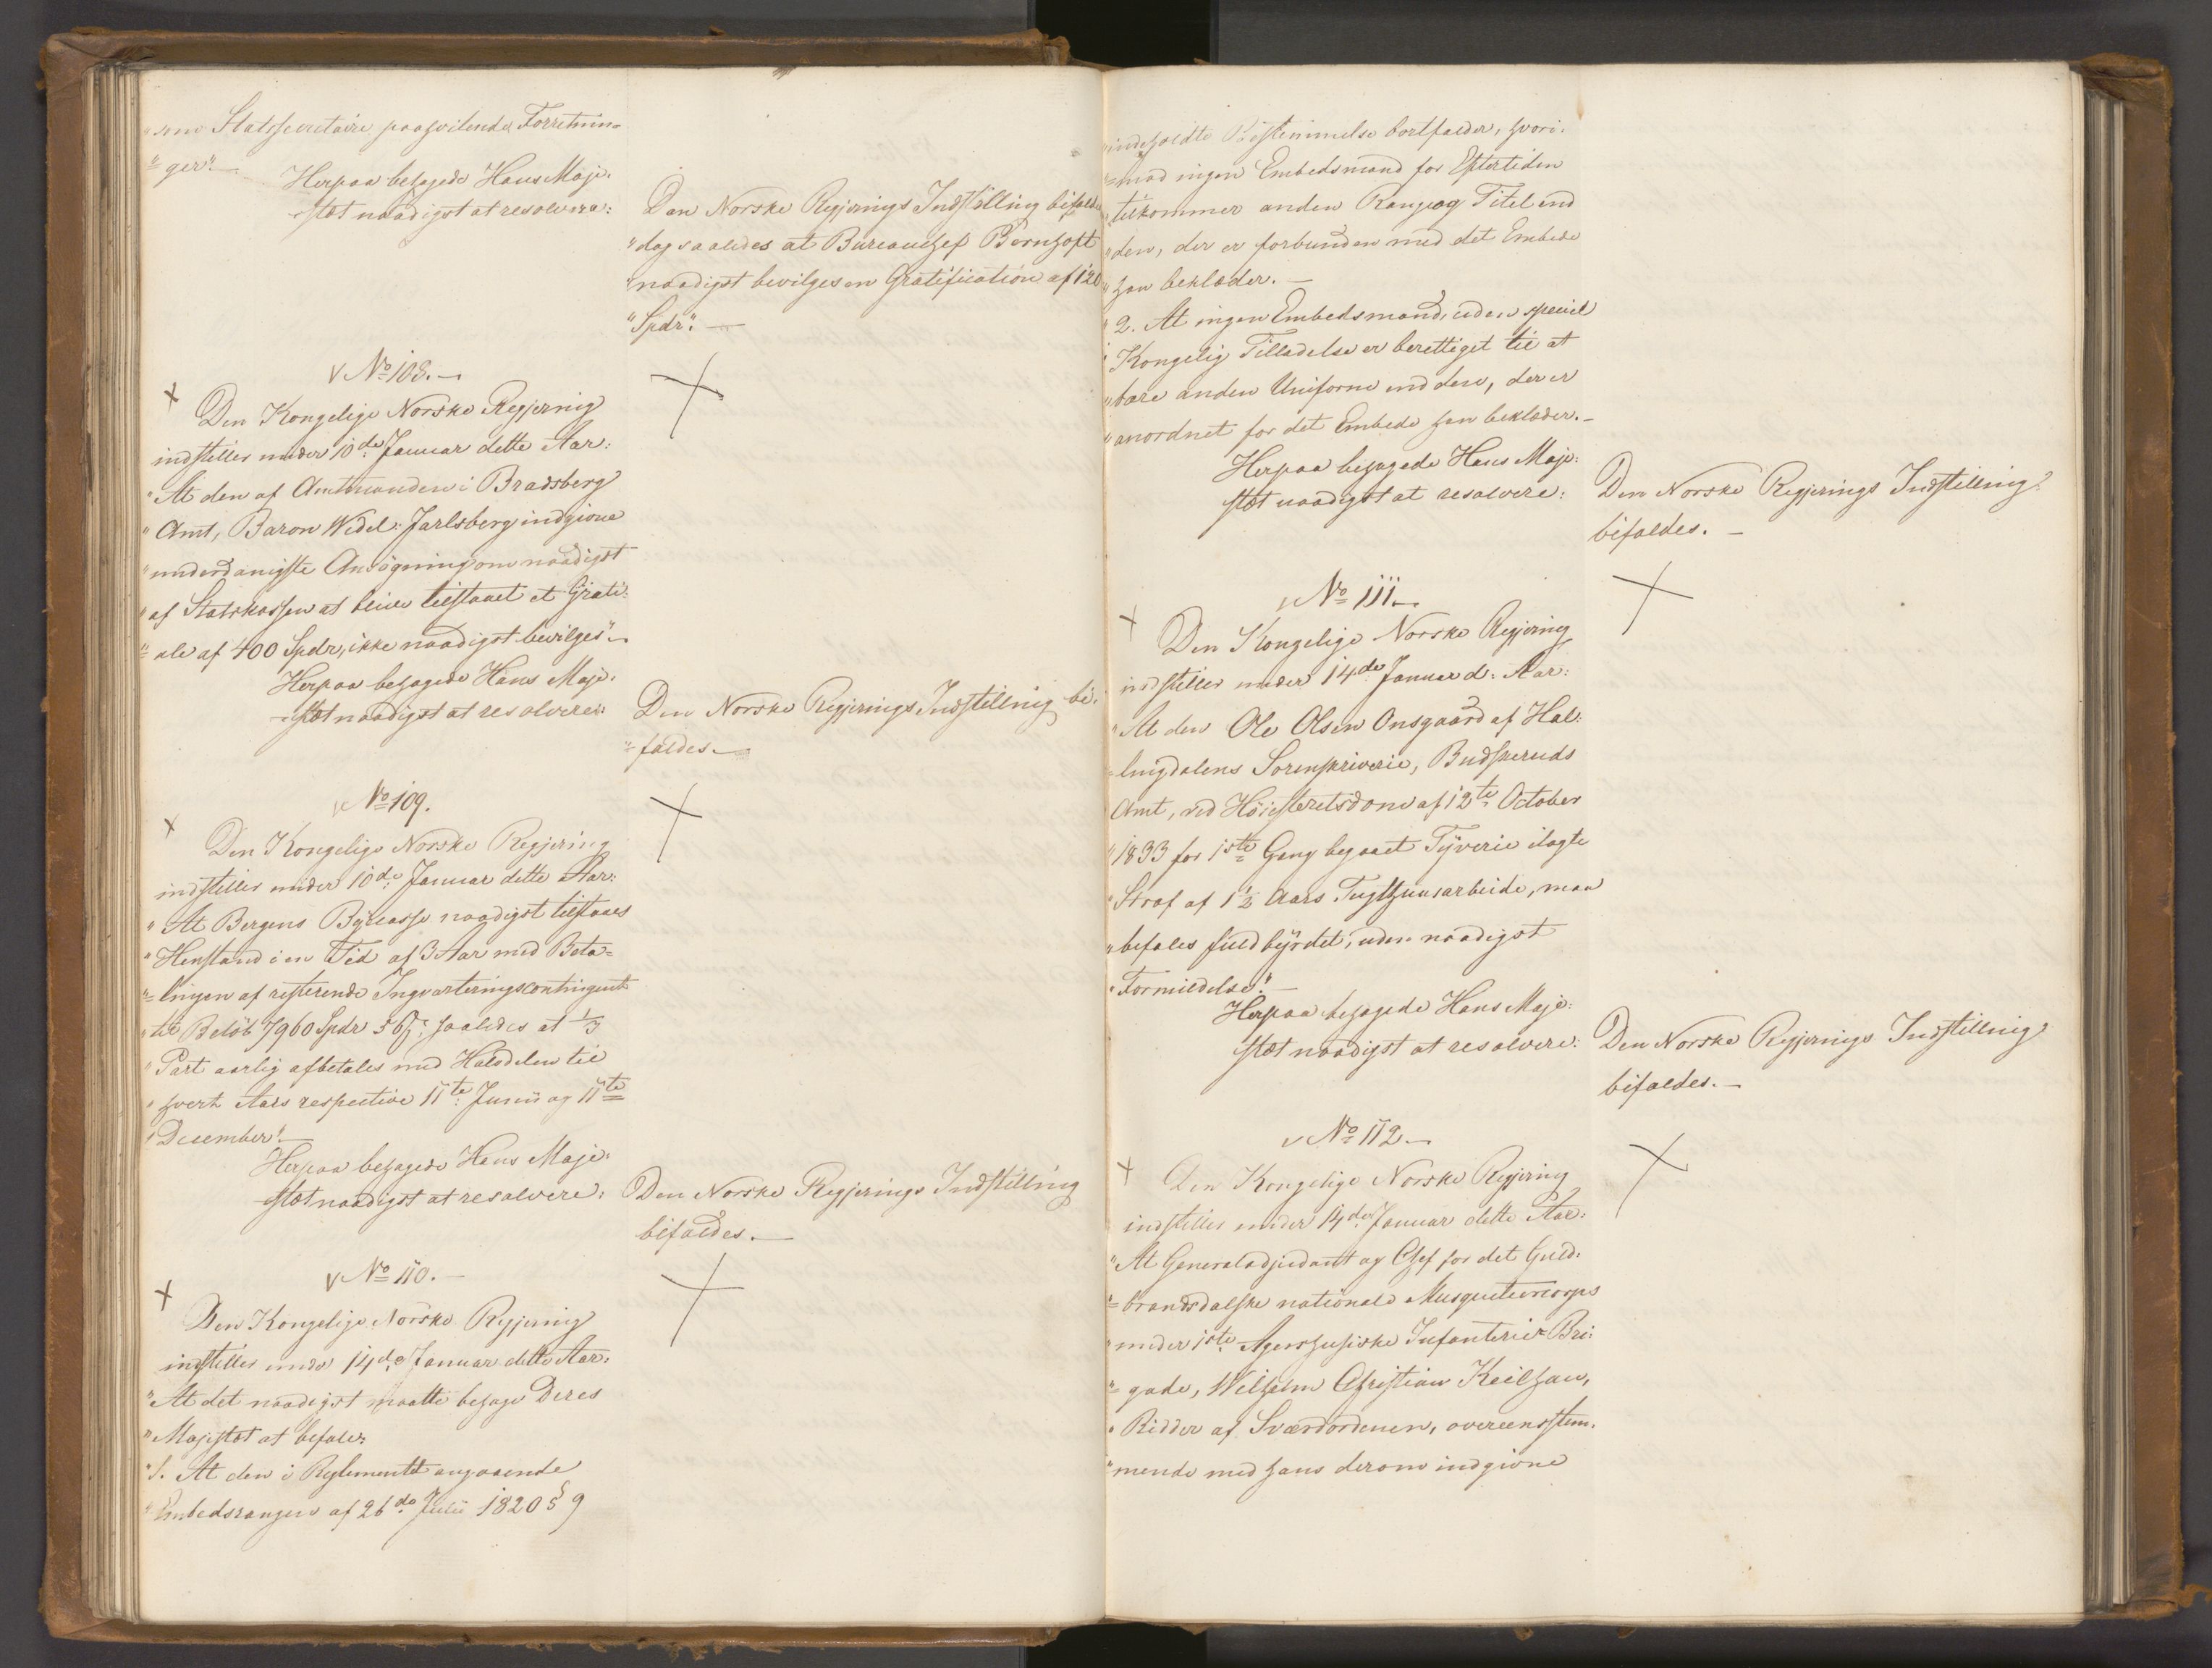 "som Statssecretaire paahvilende Forretnin=
"=ger".—
Herpaa behagede Hans Maje=
=stæt naadigst at resolvere:
Den Norske Regjerings Indstilling bifaldes
"dog saaledes at Bureauchef Bernhoft
"naadigst bevilges en Gratification af 120
"Spdr". —
V No 108. —
Den Kongelige Norske Regjering
indstiller under 10de Januar dette Aar:
"At den af Amtmanden i Bradsberg
"Amt, Baron Wedel-Jarlsberg indgivne
"underdanigste Ansøgning om naadigst
"af Statskassen at blive tilstaaet et Grati=
"=ale af 400 Spdr, ikke naadigst bevilges". —
Herpaa behagede Hans Maje=
=stæt naadigst at resolvere:
Den Norske Regjerings Indstilling bi=
"=faldes. —
V No 109.
Den Kongelige Norske Regjering
indstiller under 10de Januar dette Aar:
"At Bergens Bycasse naadigst tilstaaes
"Henstand i en Tid af 3 Aar med Beta=
"=lingen af resterende Inqvarteringscontingent
"til Beløb 7960 Spdr 56 ß: saaledes at 1/3
"Part aarlig afbetales med Halvdelen til
"hvert Aars respective 11te Junii og 11te
"December". —
Herpaa behagede Hans Maje=
=stæt naadigst at resolvere:
Den Norske Regjerings Indstilling
bifaldes. —
V No 110. —
Den Kongelige Norske Regjering
indstiller under 14de Januar dette Aar:
"At det naadigst maatte behage Deres
"Majestæt at befale:
"1. At den i Reglementet angaaende
"Embedsrangen af 26de Julii 1820 § 9
"indeholdte Bestemmelse bortfalder, hvori=
"=mod ingen Embedsmand for Eftertiden
"tilkommer anden Rang og Titel end
"den, der er forbunden med det Embede
"han beklæder. —
"2. At ingen Embedsmand, uden speciel
"Kongelig Tilladelse er berettiget til at
"bære anden Uniform end den, der er
"anordnet for det Embede han beklæder. —
Herpaa behagede Hans Maje=
stæt naadigst at resolvere:
Den Norske Regjerings Indstilling
bifaldes. —
V No 111. —
Den Kongelige Norske Regjering
indstiller under 14de Januar d: Aar:
"At den Ole Olsen Onsgaard af Hal=
"=lingdalens Sorenskriverie, Budskeruds
"Amt, ved Høiesteretsdom af 12te October
"1833 for 1ste Gang begaaet Tyverie ilagte
"Straf af 1 1/2 Aars Tugthuusarbeide, maa
"befales fuldbyrdet, uden naadigst
"Formildelse". —
Herpaa behagede Hans Maje=
stæt naadigst at resolvere:
Den Norske Regjerings Indstilling
bifaldes. —
V No 112. —
Den Kongelige Norske Regjering
indstiller under 14de Januar dette Aar:
"At Generaladjudant og Chef for det Guld=
"=brandsdalske nationale Musqueteercorps
"under 1ste Agershusiske Infanterie-Bri=
"=gade, Wilhelm Christian Keilhau,
"Ridder af Sværdordenen, overeensstem=
"mende med hans derom indgivne